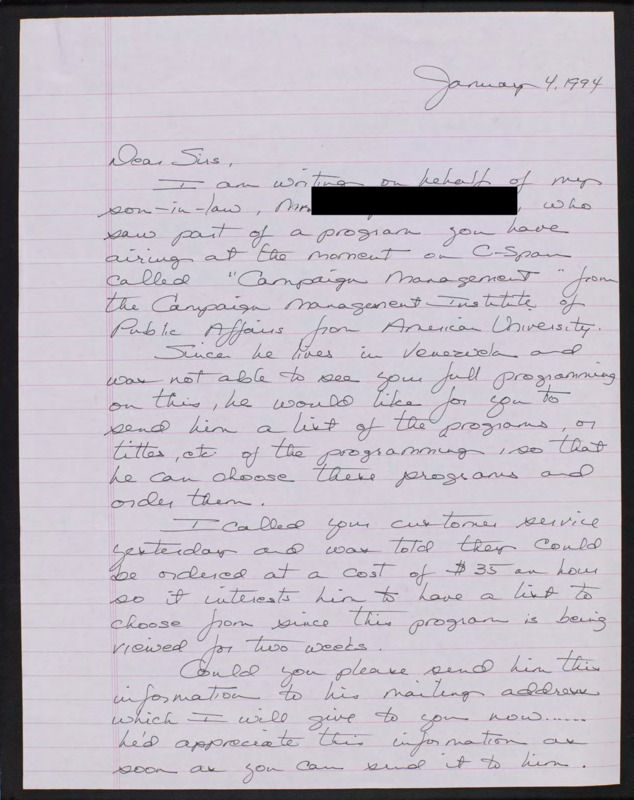 January 4, 1994
Dear Sirs,
I am writing on behalf of my
son-in-law, , who
saw part of a program you have
airing at the moment on C-Span
called "Campaign Management" from
the Campaign Management Institute of
Public Affairs from American University.
Since he lives in Venezuela and
was not able to see your full programming
on this, he would like for you to
send him a list of the programs, or
titles, etc of the programming, so that
he can choose these programs and
order them.
I called your customer service
yesterday and was told they could
be ordered at a cost of $35 an hour
so it interests him to have a list to
choose from since this program is being
viewed for two weeks.
Could you please send him this
information to his mailing address
which I will give to you now......
he'd appreciate this information as
soon as you can send it to him.